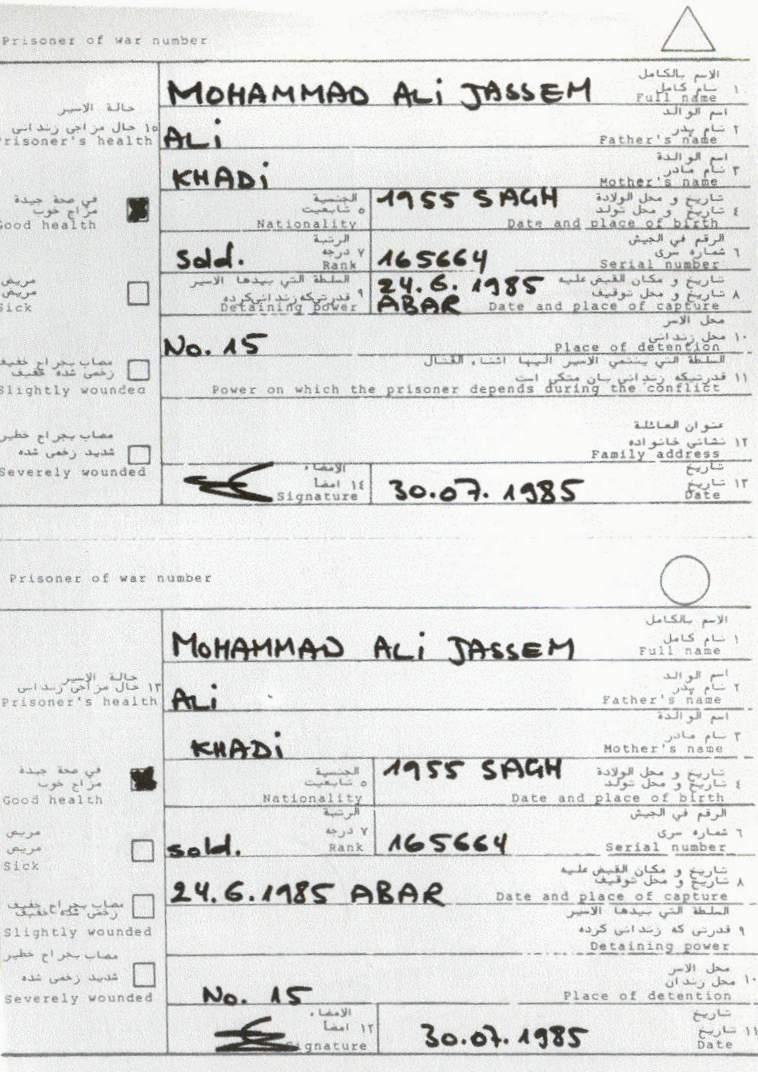 Prisoner of war number
الاسم بالكامل
MOHAMMAD ALi JASSEM ١ نام كامل
Full name
اسم الوالد
ALi ٢ نام پدر
Father's name
اسم الوالدة
KHADi ٣ نام مادر
Mother's name
حالة الاسير
١٥ حال مزاجى زندانى
Prisoner's health
في صحة جيدة
مزاج خوب
Good health
مريض
مريض
Sick
مصاب بجراح خفيف
زخمى شده خفيف
Slightly wounded
مصاب بجراح خطير
شديد زخمى شده
Severely wounded
الجنسية
٥ تابعيت
Nationality
1955 SAGH تاريخ و محل الولادة
٤ تاريخ و محل تولد
Date and place of birth
الرتبة
Sold. ٧ درجه
Rank
الرقم في الجيش
165664 ٦ شماره سرى
Serial number
السلطة التي بيدها الاسير
٩ قدرتيكه زندانى كرده
Detaining power
24.6.1985 تاريخ و مكان القبض عليه
ABAR ٨ تاريخ و محل توقيف
Date and place of capture
محل الاسر
No. 15 ١٠ محل زندانى
Place of detention
السلطة التي ينتمي الاسير اليها اثناء القتال
١١ قدرتيكه زندانى بان متكى است
Power on which the prisoner depends during the conflict
عنوان العائلة
١٢ نشانى خانواده
Family address
الامضاء
١٤ امضأ
Signature
تاريخ
30.07.1985 ١٣ تاريخ
Date
Prisoner of war number
الاسم بالكامل
MOHAMMAD ALi JASSEM ١ نام كامل
Full name
اسم الوالد
ALi ٢ نام پدر
Father's name
اسم الوالدة
KHADi ٣ نام مادر
Mother's name
حالة الاسير
١٣ حال مزاجى زندانى
Prisoner's health
في صحة جيدة
مزاج خوب
Good health
مريض
مريض
Sick
مصاب بجراح خفيف
زخمى شده خفيف
Slightly wounded
مصاب بجراح خطير
شديد زخمى شده
Severely wounded
الجنسية
٥ تابعيت
Nationality
1955 SAGH تاريخ و محل الولادة
٤ تاريخ و محل تولد
Date and place of birth
الرتبة
sold. ٧ درجه
Rank
الرقم في الجيش
165664 ٦ شماره سرى
Serial number
تاريخ و مكان القبض عليه
24.6.1985 ABAR ٨ تاريخ و محل توقيف
Date and place of capture
السلطة التي بيدها الاسير
٩ قدرتى كه زندانى كرده
Detaining power
محل الاسر
No. 15 ١٠ محل زندان
Place of detention
الامضاء
١٢ امضأ
ignature
تاريخ
30.07.1985 ١١ تاريخ
Date